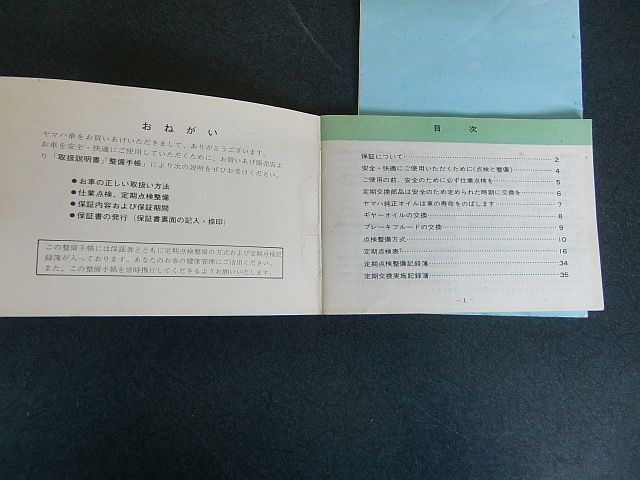 おねがい
ヤマハ車をお買いあげいただきまして、ありがとうございます。
お車を安全・快適にご使用していただくために、お買いあげ販売店よ
り「取扱説明書」「整備手帳」により次の説明を必ずお受けください。
●お車の正しい取扱い方法
●仕業点検、定期点検整備
●保証内容および保証期間
●保証書の発行（保証書裏面の記入・捺印）
この整備手帳には保証書とともに定期点検整備の方式および定期点検記
録簿が入っております。あなたのお車の健康管理にご活用ください。
また、この整備手帳を常時携行してくださるようお願いいたします。
目次
保証について……………………………………2
安全・快適にご使用いただくために(点検と整備)…………4
ご使用の前、安全のために必ず仕業点検を……………5
定期交換部品は安全のため定められた時期に交換を………6
ヤマハ純正オイルは車の寿命をのばします……………7
ギヤーオイルの交換……………………………8
ブレーキフルードの交換…………………………9
点検整備方式……………………………………10
定期点検表………………………………………16
定期点検整備記録簿……………………………34
定期交換実施記録簿……………………………35
－1－